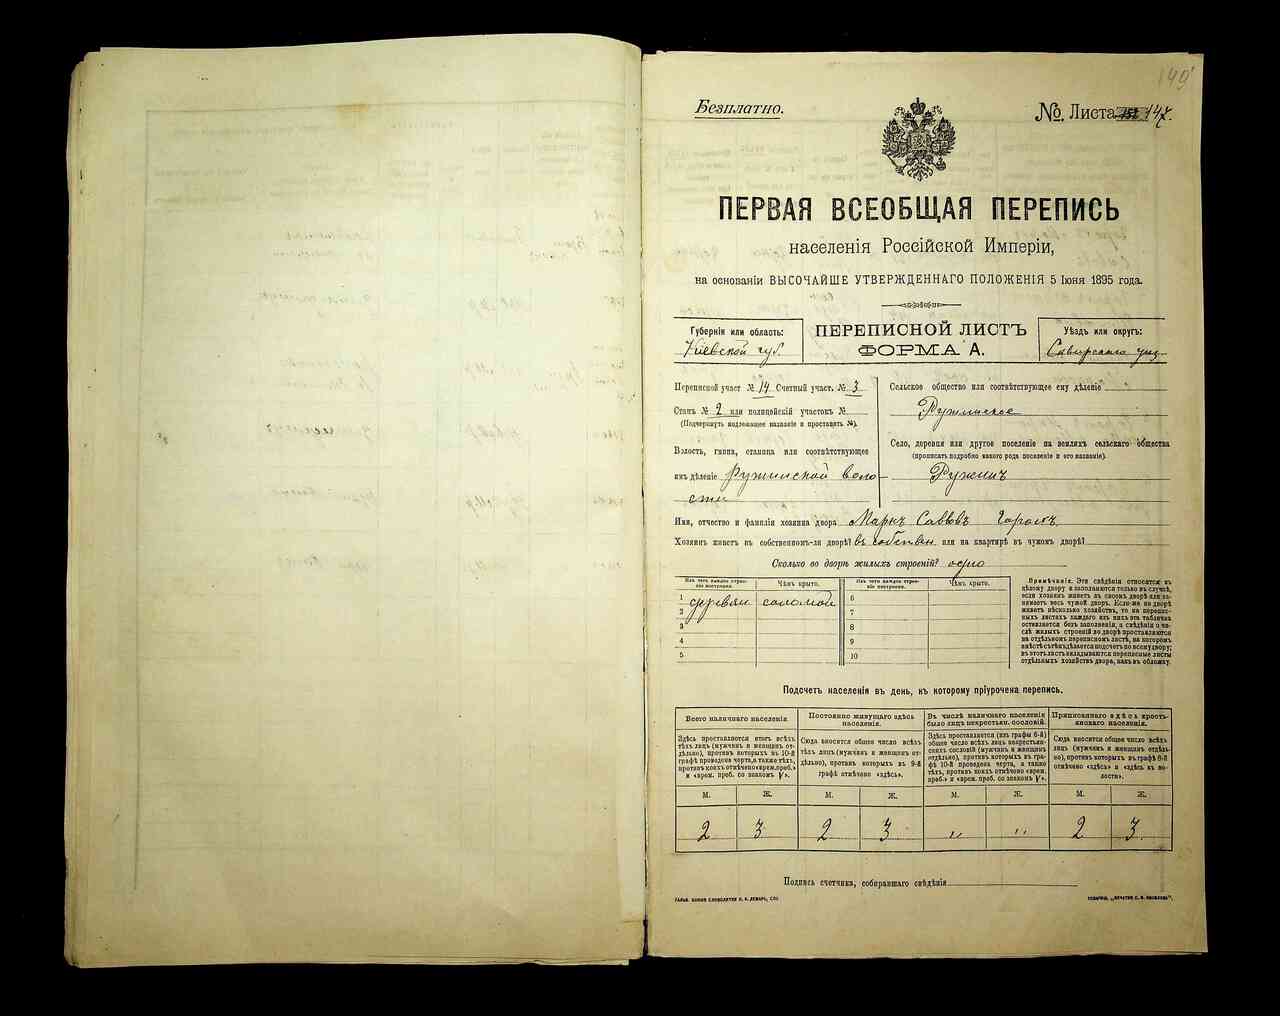 149
Безплатно.
№ Листа 147.
ПЕРВАЯ ВСЕОБЩАЯ ПЕРЕПИСЬ
населенія Россійской Имперіи,
на основаніи ВЫСОЧАЙШЕ УТВЕРЖДЕННАГО ПОЛОЖЕНІЯ 5 Іюня 1895 года.
Губернія или область:
Кіевской губ.
ПЕРЕПИСНОЙ ЛИСТЪ
ФОРМА А.
Уѣздъ или округъ:
Переписной участ № 14 Счетный участ. № 3
Станъ № 2 или полицейскій участокъ №
(Подчеркнуть надлежащее названіе и проставить №).
Волость, гмина, станица или соотвѣтствующее
имъ дѣленіе Ружинской воло
сти
Сельское общество или соотвѣтствующее ему дѣленіе
Ружинское
Село, деревня или другое поселеніе на земляхъ сельскаго общества
(прописать подробно какого рода поселеніе и его названіе).
Ружин
Имя, отчество и фамилія хозяина двора Маркъ Саввовъ
Хозяинъ живетъ въ собственномъ-ли дворѣ? въ собствен или на квартирѣ въ чужомъ дворѣ?
Сколько во дворѣ жилыхъ строеній? одно
Изъ чего каждое строеніе построено.
Чѣмъ крыто.
Изъ чего каждое строеніе построено.
Чѣмъ крыто.
1 деревян соломой 6
2 7
3 8
4 9
5 10
Примѣчаніе. Эти свѣдѣнія относятся къ
цѣлому двору и заполняются только въ случаѣ,
если хозяинъ живетъ въ своемъ дворѣ или занимаетъ
весь чужой дворъ. Если-же на дворѣ
живетъ нѣсколько хозяйствъ, то на переписныхъ
листахъ каждаго изъ нихъ эта табличка
оставляется безъ заполненія, а свѣдѣнія о числѣ
жилыхъ строеній во дворѣ проставляются
на отдѣльномъ переписномъ листѣ, на которомъ
вмѣстѣ съ тѣмъ дѣлается подсчетъ по всему двору;
въ этотъ листъ вкладываются переписные листы
отдѣльныхъ хозяйствъ двора, какъ въ обложку.
Подсчетъ населенія въ день, къ которому пріурочена перепись.
Всего наличнаго населенія
Здѣсь проставляется итогъ всѣхъ
тѣхъ лицъ (мужчинъ и женщинъ отдѣльно),
противъ которыхъ въ 10-й
графѣ проведена черта, а также тѣхъ,
противъ коихъ отмѣчено «врем. преб.»
и «врем. преб. со знакомъ V».
Постоянно живущаго здѣсь
населенія.
Сюда вносится общее число всѣхъ
тѣхъ лицъ (мужчинъ и женщинъ отдѣльно),
противъ которыхъ въ 9-й
графѣ отмѣчено «здѣсь».
Въ числѣ наличнаго населенія
было лицъ некрестьян. сословій.
Здѣсь проставляется (изъ графы 6-й)
общее число всѣхъ лицъ некрестьянскихъ
сословій (мужчинъ и женщинъ
отдѣльно), противъ которыхъ въ графѣ
10-й проведена черта, а также
тѣхъ, противъ коихъ отмѣчено «врем.
преб.» и «врем. преб. со знакомъ V».
Приписаннаго здѣсь крестьянскаго
населенія.
Сюда вносится общее число всѣхъ
лицъ (мужчинъ и женщинъ отдѣльно),
противъ которыхъ въ графѣ 8-й
отмѣчено «здѣсь» и «здѣсь въ волости».
М. Ж. М. Ж. М. Ж. М. Ж.
2 3 2 3 „ „ 2 3
Подпись счетчика, собиравшаго свѣдѣнія